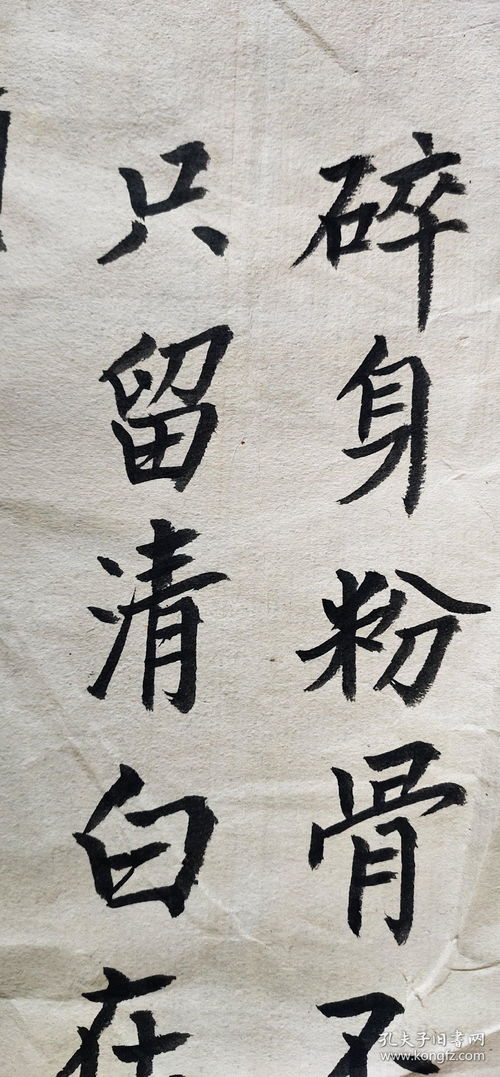 碎身粉骨不
只留清白在
孔夫子旧书网
www.kongfz.com